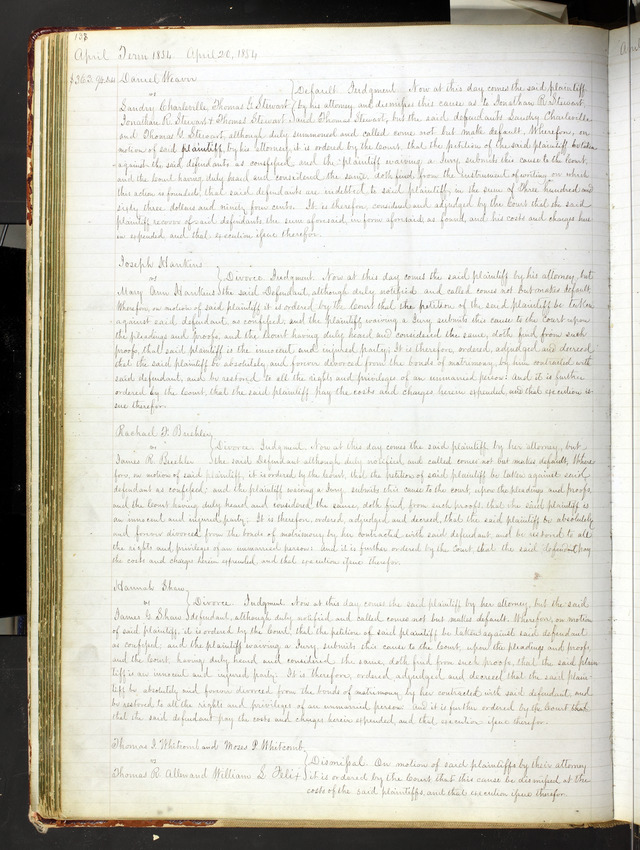 138
April Term 1854 April 20, 1854
$363.94 Daniel Weaver
vs } Default Judgment. Now at this day comes the said plaintiff
Sandry Charleville, Thomas G. Stewart by his attorney and dismisses this cause as to Jonathan R. Stewart,
Jonathan R. Stewart & Thomas Stewart and Thomas Stewart, but the said defendants Sandry Charleville
and Thomas G. Stewart, although duly summoned and called come not but make default. Wherefore, on
motion of said plaintiff, by his attorney, it is ordered by the Court, that the petition of the said plaintiff be taken
against the said defendants as confessed, and the plaintiff waiving a Jury submits this cause to the Court,
and the Court having duly heard and considered the same, doth find from the instrument of writing on which
this action is founded, that said defendants are indebted to said plaintiff, in the sum of Three hundred and
sixty three dollars and ninety four cents. It is therefore, considered and adjudged by the Court that the said
plaintiff recover of said defendants the sum aforesaid, in form aforesaid, as found, and his costs and charges here
in expended, and that execution issue therefor.
Joseph Hankins
vs } Divorce Judgment. Now at this day comes the said plaintiff by his attorney, but
Mary Ann Hankins the said Defendant, although duly notified and called comes not but makes default.
Wherefore, on motion of said plaintiff it is ordered by the Court that the petition of the said plaintiff be taken
against said defendant, as confessed, and the plaintiff waiving a Jury, submits this cause to the Court upon
the pleadings and proofs, and the Court having duly heard and considered the same, doth find from such
proofs, that said plaintiff is the innocent and injured party; It is therefore, ordered, adjudged and decreed
that the said plaintiff be absolutely and forever divorced from the bonds of matrimony, by him contracted with
said defendant, and be restored to all the rights and privileges of an unmarried person: and it is further
ordered by the Court, that the said plaintiff pay the costs and charges herein expended, and that execution is-
sue therefor.
Rachael F. Buchler
vs } Divorce Judgment. Now at this day comes the said plaintiff by her attorney, but
James R. Buchler the said Defendant although duly notified, and called comes not but makes default, Where
fore, on motion of said plaintiff, it is ordered by the Court, that the petition of said plaintiff be taken against said
defendant as confessed; and the plaintiff waiving a Jury, submits this cause to the court, upon the pleadings and proofs,
and the Court having duly heard and considered the same, doth find from such proofs that the said plaintiff is
an innocent and injured party; It is therefore, ordered, adjudged and decreed, that the said plaintiff be absolutely
and forever divorced from the bonds of matrimony by her contracted with said defendant, and be restored to all
the rights and privileges of an unmarried person: and it is further ordered by the Court, that the said defendant pay
the costs and charges herein expended, and that execution issue therefor.
Hannah Shaw
vs } Divorce Judgment Now at this day comes the said plaintiff by her attorney, but the said
James G. Shaw defendant, although duly notified and called comes not but makes default. Wherefore, on motion
of said plaintiff, it is ordered by the Court that the petition of said plaintiff be taken against said defendant
as confessed; and the plaintiff waiving a Jury submits this cause to the Court, upon the pleadings and proofs,
and the Court having duly heard and considered the same, doth find from such proofs, that the said plain
tiff is an innocent and injured party; It is therefore, ordered, adjudged and decreed that the said plain-
tiff be absolutely and forever divorced from the bonds of matrimony by her contracted with said defendant, and
be restored to all the rights and privileges of an unmarried person and it is further ordered by the Court that
that the said defendant pay the costs and charges herein expended, and that execution issue therefor.
Thomas J. Whitcomb and Moses P. Whitcomb,
vs } Dismissal. On motion of said plaintiffs by their attorney
Thomas R. Allen and William S. Felix it is ordered by the Court that this cause be dismissed at the
costs of the said plaintiffs and that execution issue therefor.